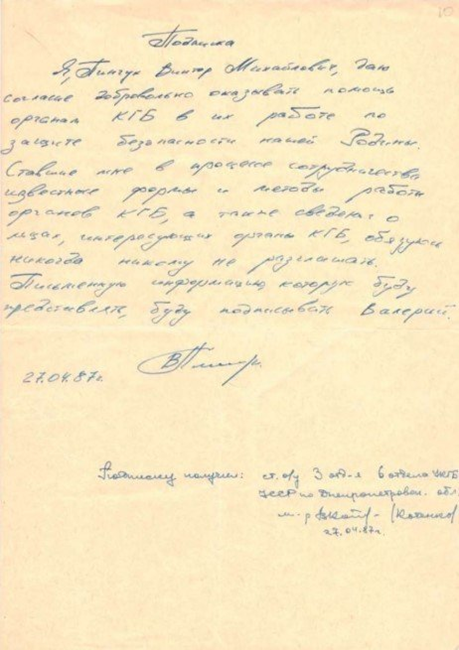 10
Подписка
Я, Пинчук Виктор Михайлович, даю
согласие добровольно оказывать помощь
органам КГБ в их работе по
защите безопасности нашей Родины.
Ставшие мне в процессе сотрудничества
известные формы и методы работы
органов КГБ, а также сведения о
лицах, интересующих органы КГБ, обязуюсь
никогда никому не разглашать.
Письменную информацию которую буду
представлять, буду подписывать Валерий.
27.04.87г.
Подписку получил: ст. о/у 3 отд-я 6 отдела УКГБ
УССР по Днепропетровск. обл.
м-р
27.04.87г.